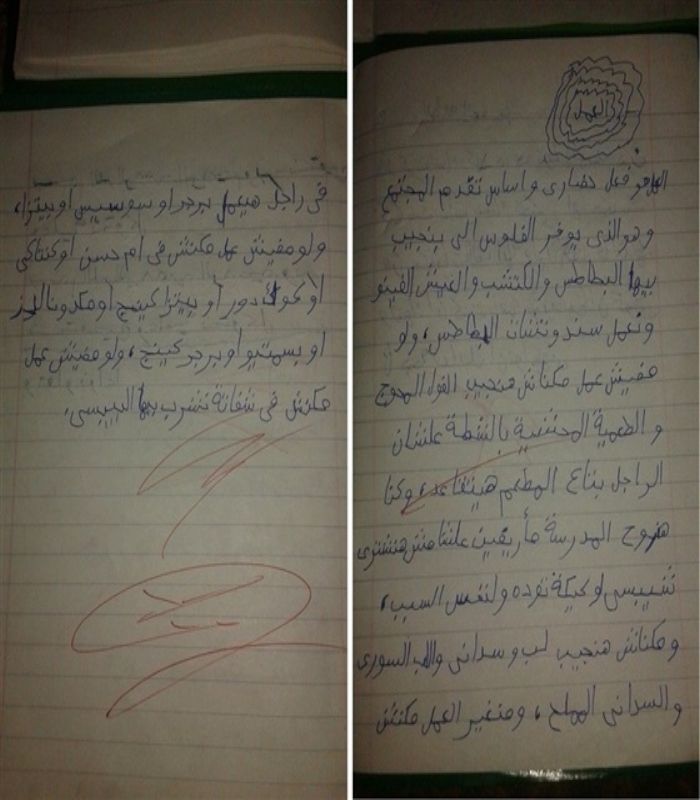 العمل
العمل هو فعل حضارى واساس تقدم المجتمع
وهو الذى يوفر الفلوس الى بنجيب
بيها البطاطس والكتشب والعيش الفينو
ونعمل سندوتشات البطاطس، ولو
مفيش عمل مكناش هنجيب الفول المدوج
والطعمية المحشية بالشطة علشان
الراجل بتاع المطعم هيتقاعد، وكنا
هنروح المدرسة مأريفين علشا مش هنشترى
شيبسى او كيكة نوده ولنفس السبب،
ومكناش هنجيب لب وسدانى واللب السورى
والسدانى المملح، ومنغير العمل مكنش
فى راجل هيعمل برجر او سوسيس او بيتزا،
ولو مفيش عمل مكنش فى ام حسن او كنتاكى
او كوك دور او بيتزا كينج او مكدونالدز
او بسمتيو او برجر كينج، ولو مفيش عمل
مكنش فى شفاتة نشرب بيها البيبسى.